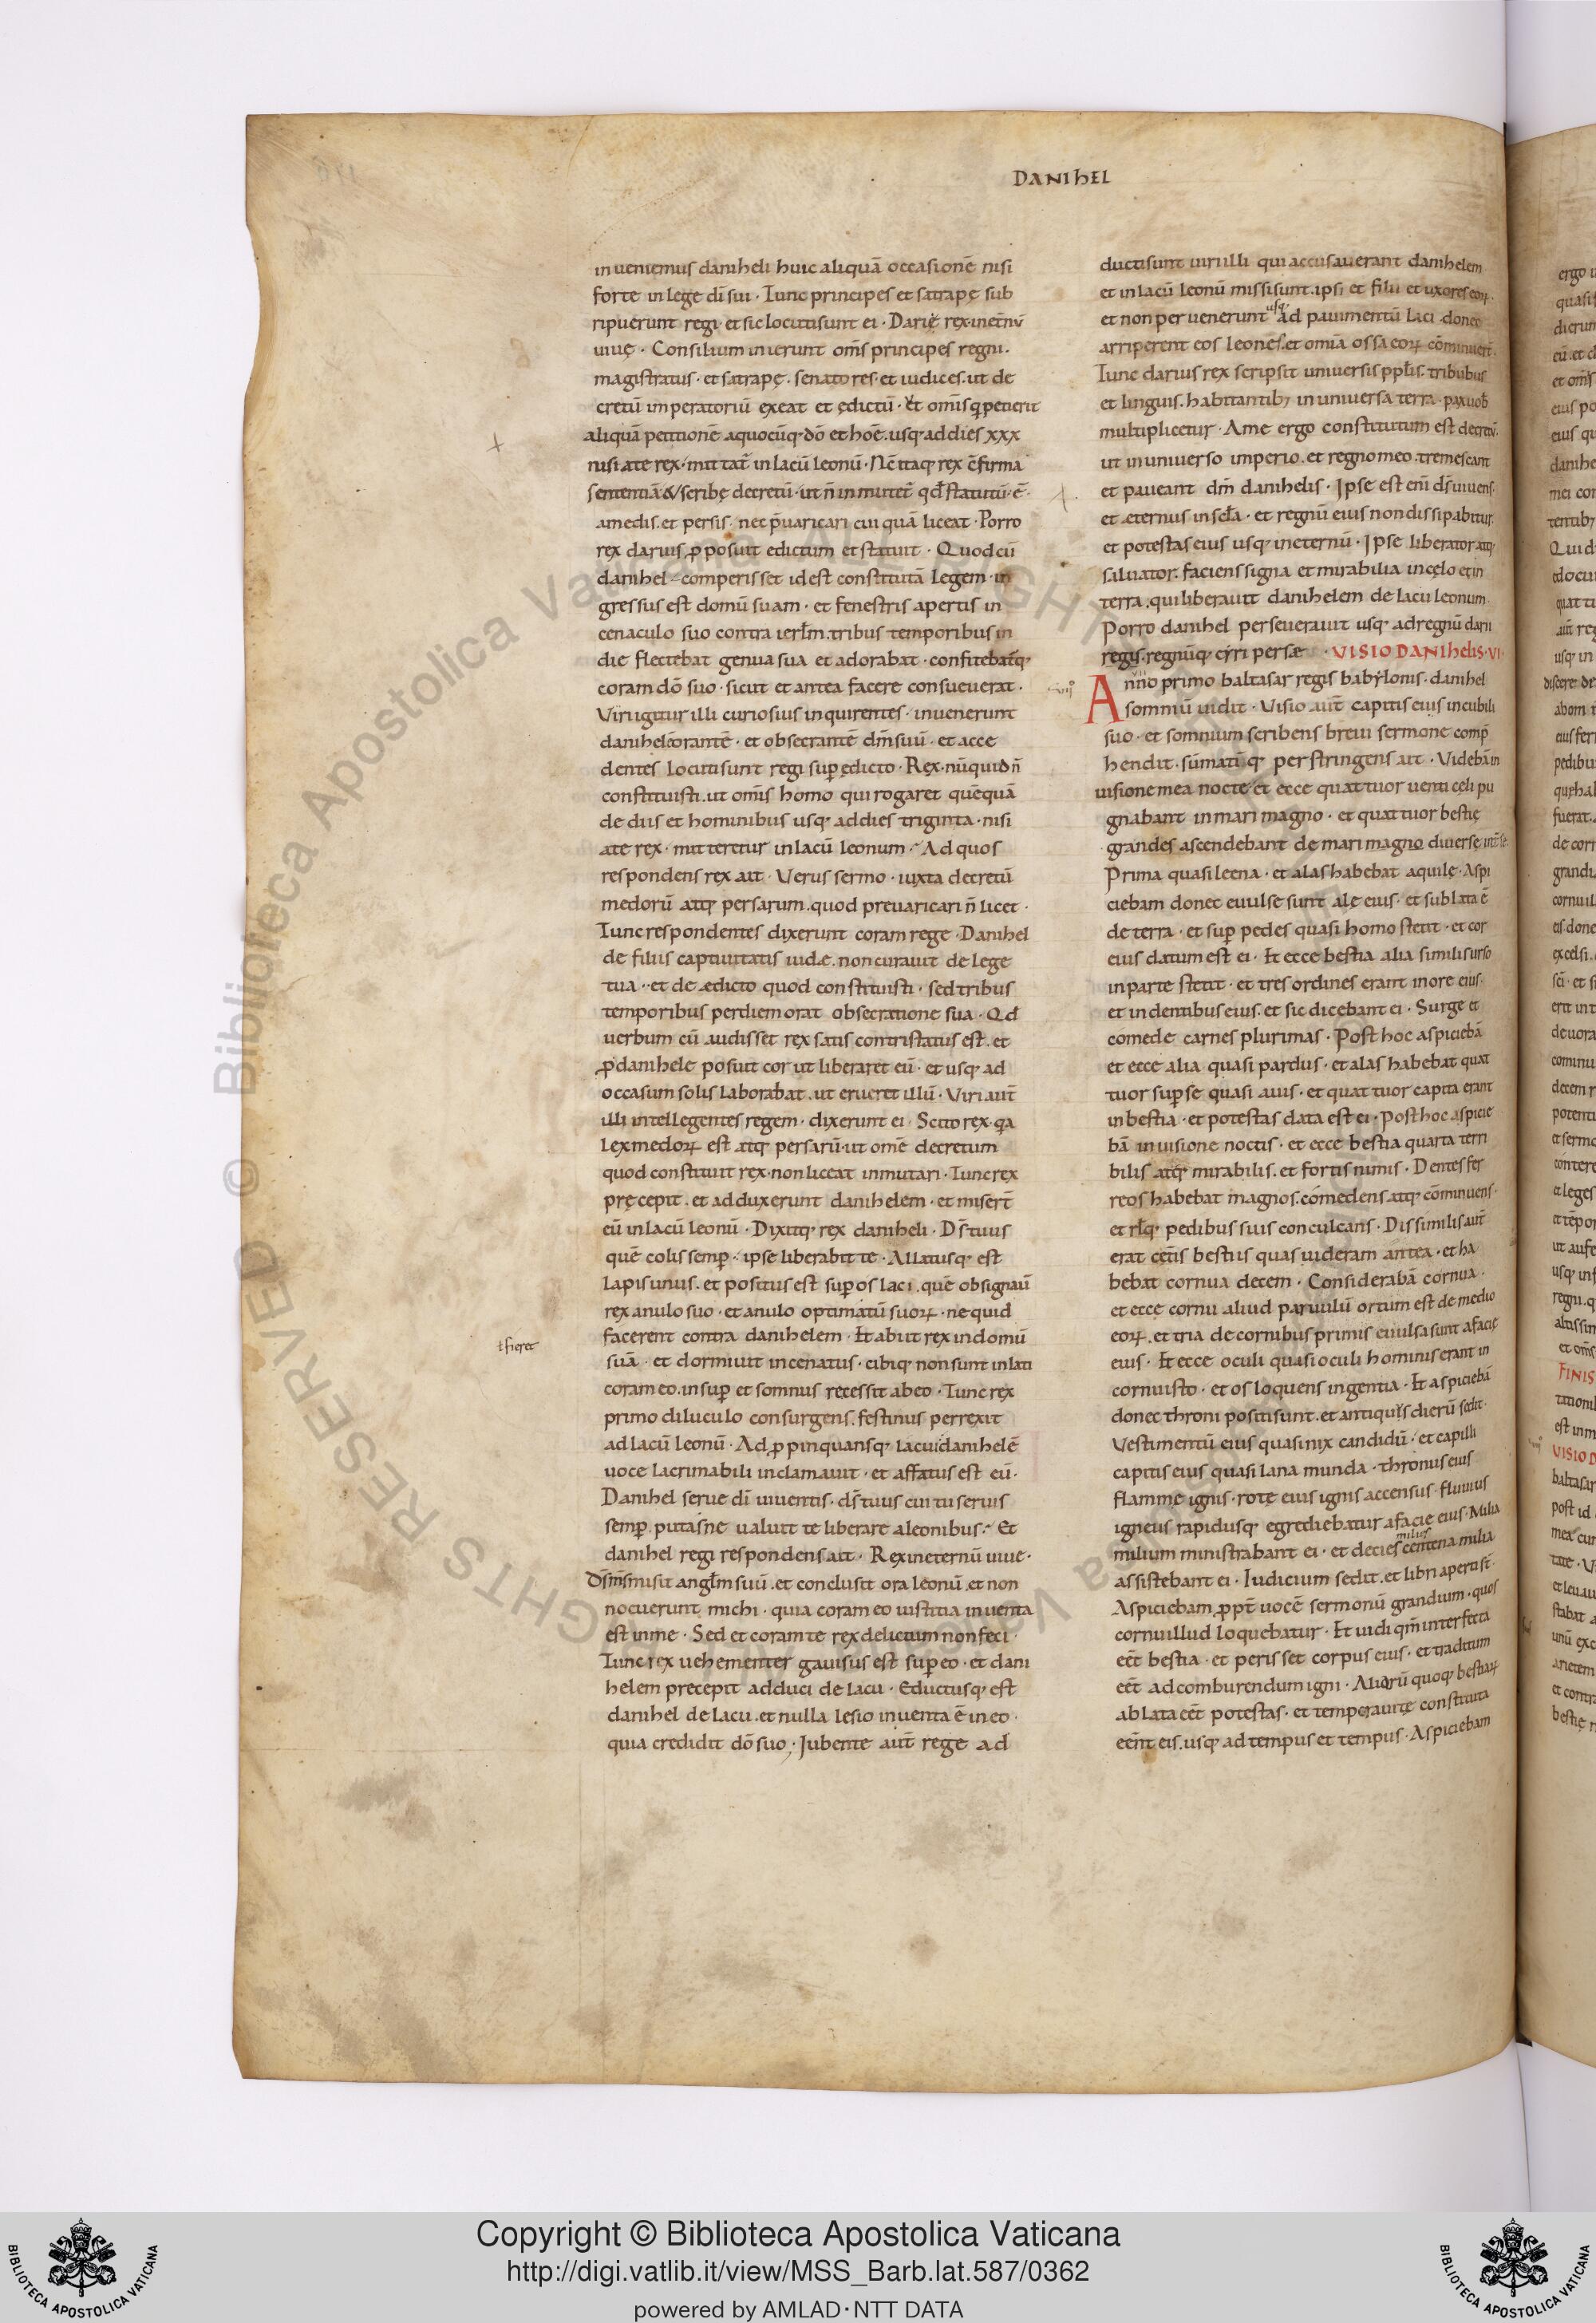 DANIhEL
inueniemus daniheli huic aliquā occasionē nisi
forte in lege dī sui · Tunc principes et satrapę sub
ripuerunt regi et sic locuti sunt ei · Darię rex inetnū
uiuę · Consilium inierunt om̄s principes regni ·
magistratus · et satrapę · senatores · et iudices · ut de
cretū imperatoriū exeat et ędictū · et om̄is q petierit
aliquā petitionē a quocūq; dō et hoē · usq; ad dies xxx
nisi a te rex · mittat̄ in lacū leonū · Nc̄ itaq; rex c̄firma
sententiā & scribę decretū · ut n̄ inmutet̄ qd̄ statutū ·ē·
a medis · et persis · nec p̄uaricari cuiquā liceat · Porro
rex darius p̱posuit edictum et statuit · Quod cū
danihel comperisset id est constitutā legem · in
gressus est domū suam · et fenestris apertis in
cenaculo suo contra ierlm̄ · tribus temporibus in
die flectebat genua sua et adorabat · confitebat̄q;
coram dō suo · sicut et antea facere consueuerat ·
Viri igitur illi curiosius inquirentes · inuenerunt
danihelē orantē · et obsecrantē dm̄ suū · et acce
dentes locuti sunt regi sup̱ ędicto · Rex · nūquid n̄
constituisti · ut om̄is homo qui rogaret quēquā
de diis et hominibus usq; ad dies triginta · nisi
a te rex · mitteretur in lacū leonum · Ad quos
respondens rex ait · Verus sermo · iuxta decretū
medorū atq; persarum · quod preuaricari n̄ licet ·
Tunc respondentes dixerunt coram rege · Danihel
de filiis captiuitatis iudæ · non curauit de lege
tua · et de ædicto quod constituisti · sed tribus
temporibus per diem orat obsecratione sua · Qd
uerbum cū audisset rex satis contristatus est · et
p̱ danihele posuit cor ut liberaret eū · et usq; ad
occasum solis laborabat · ut erueret illū · Viri aut̄
illi intellegentes regem · dixerunt ei · Scito rex · qa
lex medoꝝ est atq; persarū · ut omē decretum
quod constituit rex · non liceat inmutari · Tunc rex
pręcepit · et adduxerunt danihelem · et misert̄
eū in lacū leonū · Dixitq; rex daniheli · Ds̄ tuus
quē colis semp̱ · ipse liberabit te · Allatusq; est
lapis unus · et positus est sup̱ os laci · quē obsignau̅
rex anulo suo · et anulo optimatū suoꝝ · ne quid
facerent contra danihelem · Et abiit rex in domū
ł fieret
suā · et dormiuit incenatus · cibiq; non sunt inlati
coram eo · insup̱ et somnus recessit ab eo · Tunc rex
primo diluculo consurgens · festinus perrexit
ad lacū leonū · Adp̱pinquansq; lacui danihelē
uoce lacrimabili inclamauit · et affatus est eū ·
Danihel serue dī uiuentis · ds̄ tuus cui tu seruis
semp̱ · putasne ualuit te liberare a leonibus · Et
danihel regi respondens ait · Rex ineternū uiue ·
Ds̄ ms̄ misit anglm̄ suū · et conclusit ora leonū · et non
nocuerunt michi · quia coram eo iustitia inuenta
est in me · Sed et coram te rex delictum non feci ·
Tunc rex uehementer gauisus est sup̱ eo · et dani
helem precepit adduci de lacu · Eductusq; est
danihel de lacu · et nulla lesio inuenta ē in eo ·
quia credidit dō suo · Jubente aut̄ rege ad
ducti sunt uiri illi qui accusauerant danihelem
et in lacū leonū missi sunt · ipsi et filii et uxores eoꝝ ·
et non peruenerunt usq; ad pauimentū laci · donec
arriperent eos leones · et omīa ossa eoꝝ cōminuert̄ ·
Tunc darius rex scripsit uniuersis pplīs · tribubus
et linguis · habitantib; in uniuersa terra · pax uob
multiplicetur · A me ergo constitutum est decretū ·
ut in uniuerso imperio · et regno meo · tremescant
et paueant dm̄ danihelis · Ipse est eni ds̄ uiuens
et æternus in scla · et regnū eius non dissipabitur
et potestas eius usq; ineternū · Ipse liberator atq;
saluator · faciens signa et mirabilia in cęlo et in
terra · qui liberauit danihelem de lacu leonum
Porro danihel perseuerauit usq; ad regnū darii
regis · regnūq; cyri persæ · VISIO DANIhELIS · VI ·
Anno primo baltasar regis babylonis · danihel
somniū uidit · Visio aut̄ capitis eius in cubili
suo · et somnium scribens breui sermone comp̱
hendit · sūmatī q; perstringens ait · Videbā in
uisione mea nocte et ecce quattuor uenti cęli pu
gnabant in mari magno · et quattuor bestię
grandes ascendebant de mari magno diuerse int̄ se
Prima quasi leena · et alas habebat aquilę · Aspi
ciebam donec euulse sunt alę eius · et sublata ē
de terra · et sup̱ pedes quasi homo stetit · et cor
eius datum est ei · Et ecce bestia alia similis urso
in parte stetit · et tres ordines erant in ore eius ·
et in dentibus eius · et sic dicebant ei · Surge et
comede carnes plurimas · Post hoc aspiciebā
et ecce alia quasi pardus · et alas habebat quat
tuor sup̱ se quasi auis · et quattuor capita erant
in bestia · et potestas data est ei · Post hoc aspicie
bā in uisione noctis · et ecce bestia quarta terri
bilis atq; mirabilis · et fortis nimis · Dentes fer
reos habebat magnos · comedens atq; cōminuens ·
et rlq; pedibus suis conculcans · Dissimilis aut̄
erat cet̄is bestiis quas uideram antea · et ha
bebat cornua decem · Considerabā cornua ·
et ecce cornu aliud paruulū ortum est de medio
eoꝝ · et tria de cornibus primis euulsa sunt a facię
eius · Et ecce oculi quasi oculi hominis erant in
cornu isto · et os loquens ingentia · Et aspiciebā
donec throni positi sunt · et antiquus dierū sedit ·
Vestimentū eius quasi nix candidū · et capilli
capitis eius quasi lana munda · thronus eius
flamme ignis · rotę eius ignis accensus · fluuius
igneus rapidusq; egrediebatur a facie eius · Milia
milium ministrabant ei · et decies milies centena milia
assistebant ei · Iudicium sedit · et libri aperti st̄ ·
Aspiciebam p̱pt̄ uocē sermonū grandium · quos
cornu illud loquebatur · Et uidi qm̄ interfecta
eēt bestia · et perisset corpus eius · et traditum
eēt ad comburendum igni · Aliarū quoq; bestiaꝝ
ablata eēt potestas · et tempora uitę constituta
eēnt eis · usq; ad tempus et tempus · Aspiciebam
Copyright © Biblioteca Apostolica Vaticana
http://digi.vatlib.it/view/MSS_Barb.lat.587/0362
powered by AMLAD·NTT DATA
BIBLIOTECA APOSTOLICA VATICANA
BIBLIOTECA APOSTOLICA VATICANA